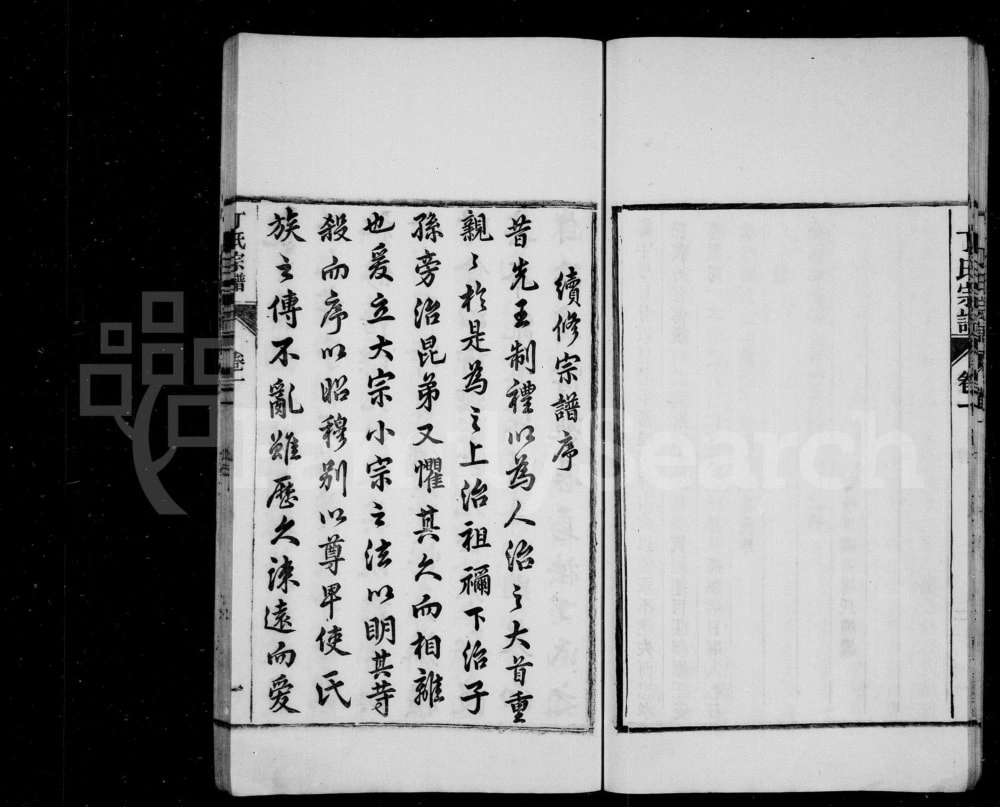 丁氏宗譜
卷一
續修宗譜序
昔先王制禮以為人治之大首重
親〻於是為之上治祖禰下治子
孫旁治昆弟又懼其久而相離
也爰立大宗小宗之法以明其等
殺而序以昭穆別以尊卑使氏
族之傳不亂雖歷久疎遠而愛
丁氏宗譜
卷一
一
FamilySearch